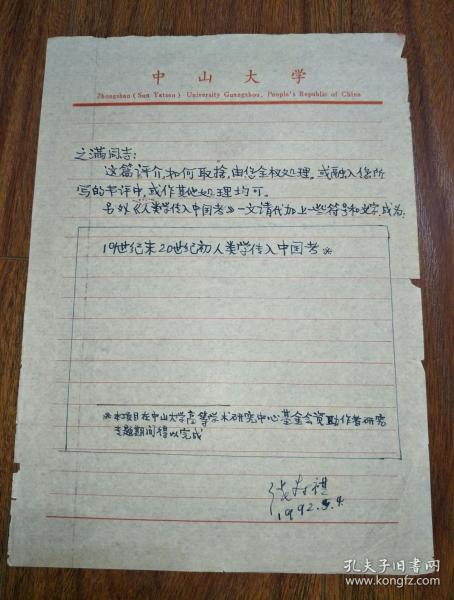 中山大学
Zhongshan (Sun Yatsen) University Guangzhou, People's Republic of China
之满同志:
这篇评介,如何取捨,由您全权处理。或融入您所
写的书评中,或作其他处理均可。
另外《人类学传入中国考》一文请代加上一些符号和文字成为:
19世纪末20世纪初人类学传入中国考※
※本项目在中山大学高等学术研究中心基金会资助作者研究
专题期间得以完成
1992.5.4.
孔夫子旧书网
www.kongfz.com